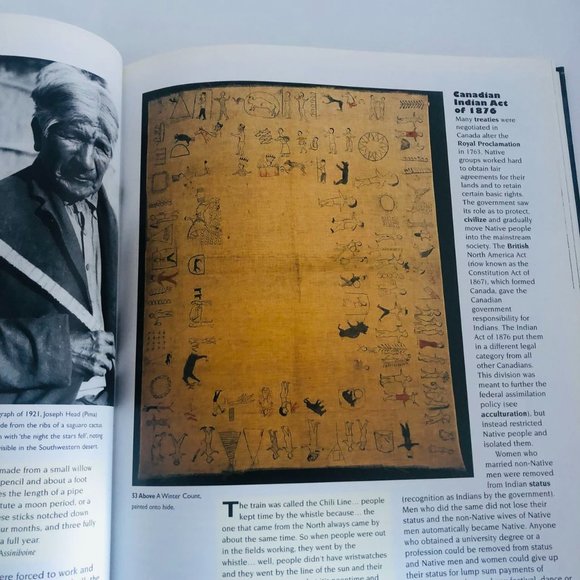 graph of 1921, Joseph Head (Pima)
de from the ribs of a saguaro cactus
n with 'the night the stars fell', noting
visible in the Southwestern desert.
made from a small willow
pencil and about a foot
es the length of a pipe
tute a moon period, or a
se sticks notched down
ur months, and three fully
a full year.
Assiniboine
were forced to work and
53 Above A Winter Count,
painted onto hide.
The train was called the Chili Line... people
kept time by the whistle because... the
one that came from the North always came by
about the same time. So when people were out
in the fields working, they went by the
whistle... well, people didn't have wristwatches
and they went by the line of the sun and their
Canadian
Indian Act
of 1876
Many treaties were
negotiated in
Canada after the
Royal Proclamation
in 1763. Native
groups worked hard
to obtain fair
agreements for their
lands and to retain
certain basic rights.
The government saw
its role as to protect,
civilize and gradually
move Native people
into the mainstream
society. The British
North America Act
(now known as the
Constitution Act of
1867), which formed
Canada, gave the
Canadian
government
responsibility for
Indians. The Indian
Act of 1876 put them
in a different legal
category from all
other Canadians.
This division was
meant to further the
federal assimilation
policy (see
acculturation), but
instead restricted
Native people and
isolated them.
Women who
married non-Native
men were removed
from Indian status
(recognition as Indians by the government).
Men who did the same did not lose their
status and the non-Native wives of Native
men automatically became Native. Anyone
who obtained a university degree or a
profession could be removed from status
and Native men and women could give up
their status for lump sum payments of